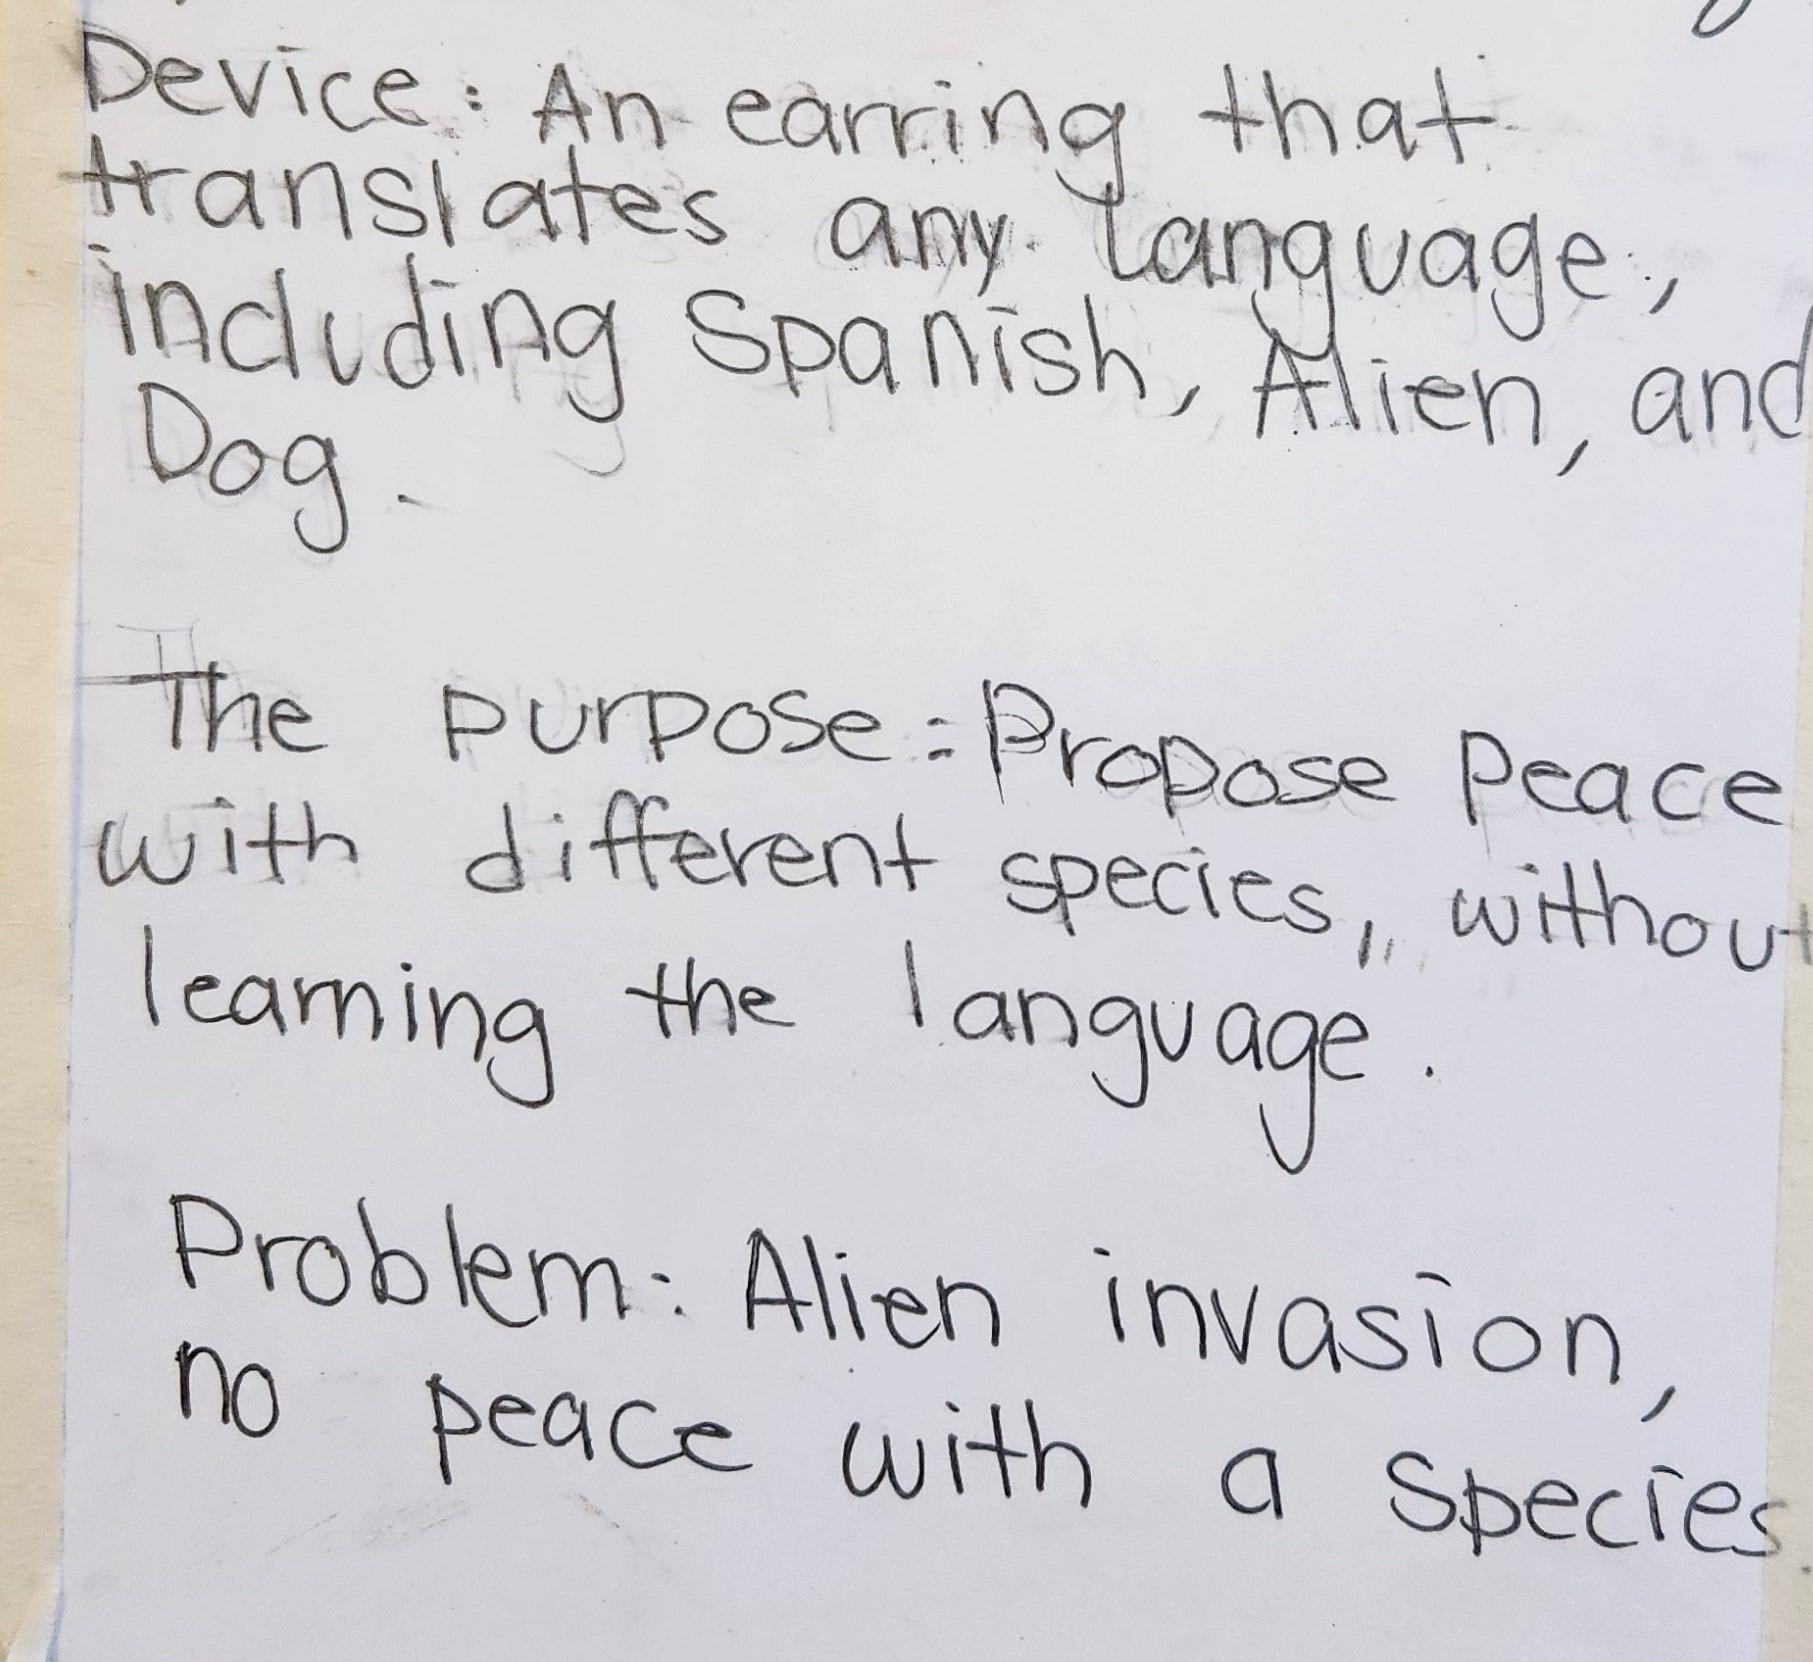 Device: An earring that
translates any language,
including Spanish, Alien, and
Dog.
The purpose: Propose Peace
with different species, without
learning the language.
Problem: Alien invasion,
no peace with a species.